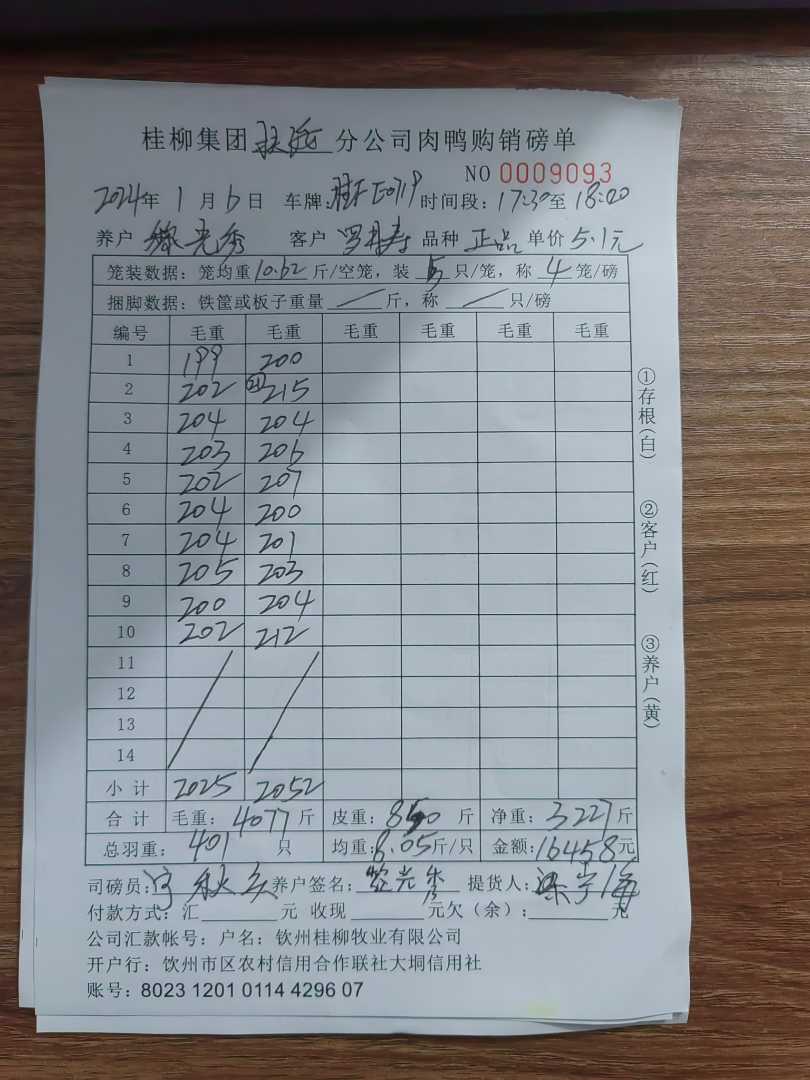 桂柳集团 分公司肉鸭购销磅单
NO 0009093
2024年 1 月 6 日 车牌: 时间段: 17:30至 18:00
养户 光秀 客户 品种 正品 单价 5.1元
笼装数据: 笼均重10.62斤/空笼, 装 5 只/笼, 称 4 笼/磅
捆脚数据: 铁筐或板子重量 / 斤, 称 / 只/磅
编号 毛重 毛重 毛重 毛重 毛重 毛重
1 199 200
2 202 215
3 204 204
4 203 206
5 202 207
6 204 200
7 204 201
8 205 203
9 200 204
10 202 212
11
12
13
14
小计 2025 2052
合计 毛重: 4077斤 皮重: 850 斤 净重: 3227斤
总羽重: 401 只 均重: 8.05斤/只 金额: 16458元
司磅员: 养户签名: 提货人:
付款方式: 汇 元 收现 元欠(余): 元
公司汇款帐号: 户名: 钦州桂柳牧业有限公司
开户行: 饮州市区农村信用合作联社大垌信用社
账号: 8023 1201 0114 4296 07
①存根(白)
②客户(红)
③养户(黄)